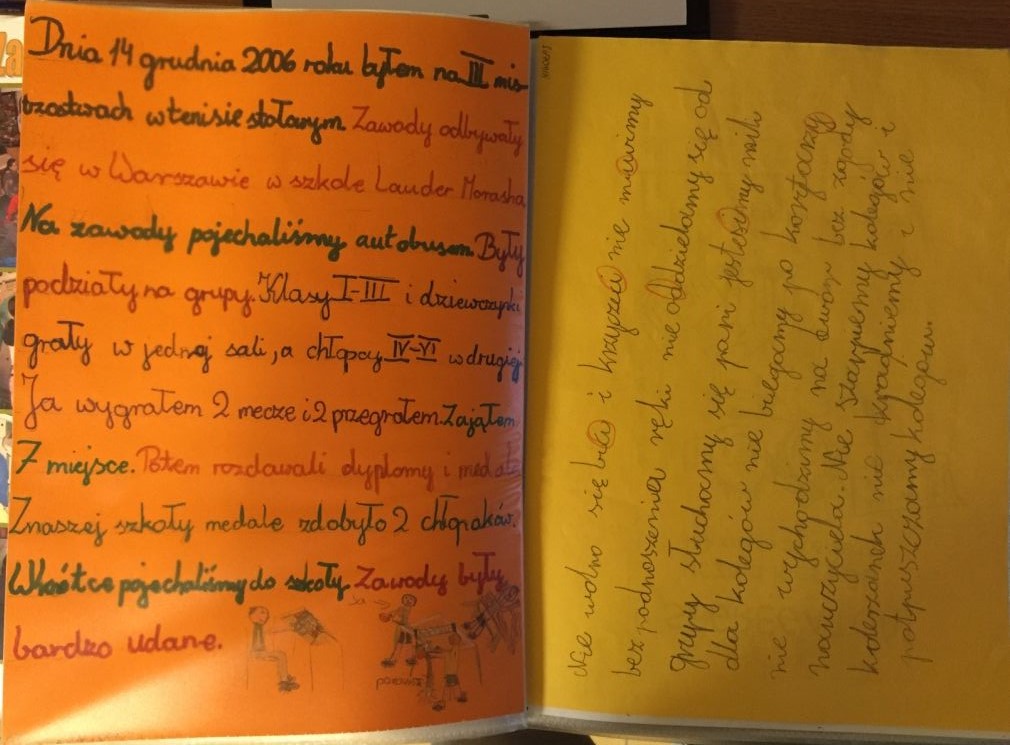 Dnia 14 grudnia 2006 roku byłem na III mis-
trzostwach w tenisie stołowym. Zawody odbywały
się w Warszawie w szkole Lauder Morasha
Na zawody pojechaliśmy autobusem. Były
podziały na grupy. Klasy I-III i dziewczynki
grały w jednej sali, a chłopcy IV-VI w drugiej
Ja wygrałem 2 mecze i 2 przegrałem. Zająłem
7 miejsce. Potem rozdawali dyplomy i medale
Znaszej szkoły medale zdobyło 2 chłopaków.
Wkrótce pojechaliśmy do szkoły. Zawody były
bardzo udane.
Nie wolno się bici i krzyczei nie muwimy
bez podnoszenia ręki nie oddzielamy się od
grupy słuchamy się pani jestesmy mili
dla kolegów nie bielegamy po korytarzu
nie wychodzimy na dwór bez zgody
nauczyciela. Nie szarpiemy kolegów i
koleżanek nie kradniemy i nie
potpuszczamy kolegow.